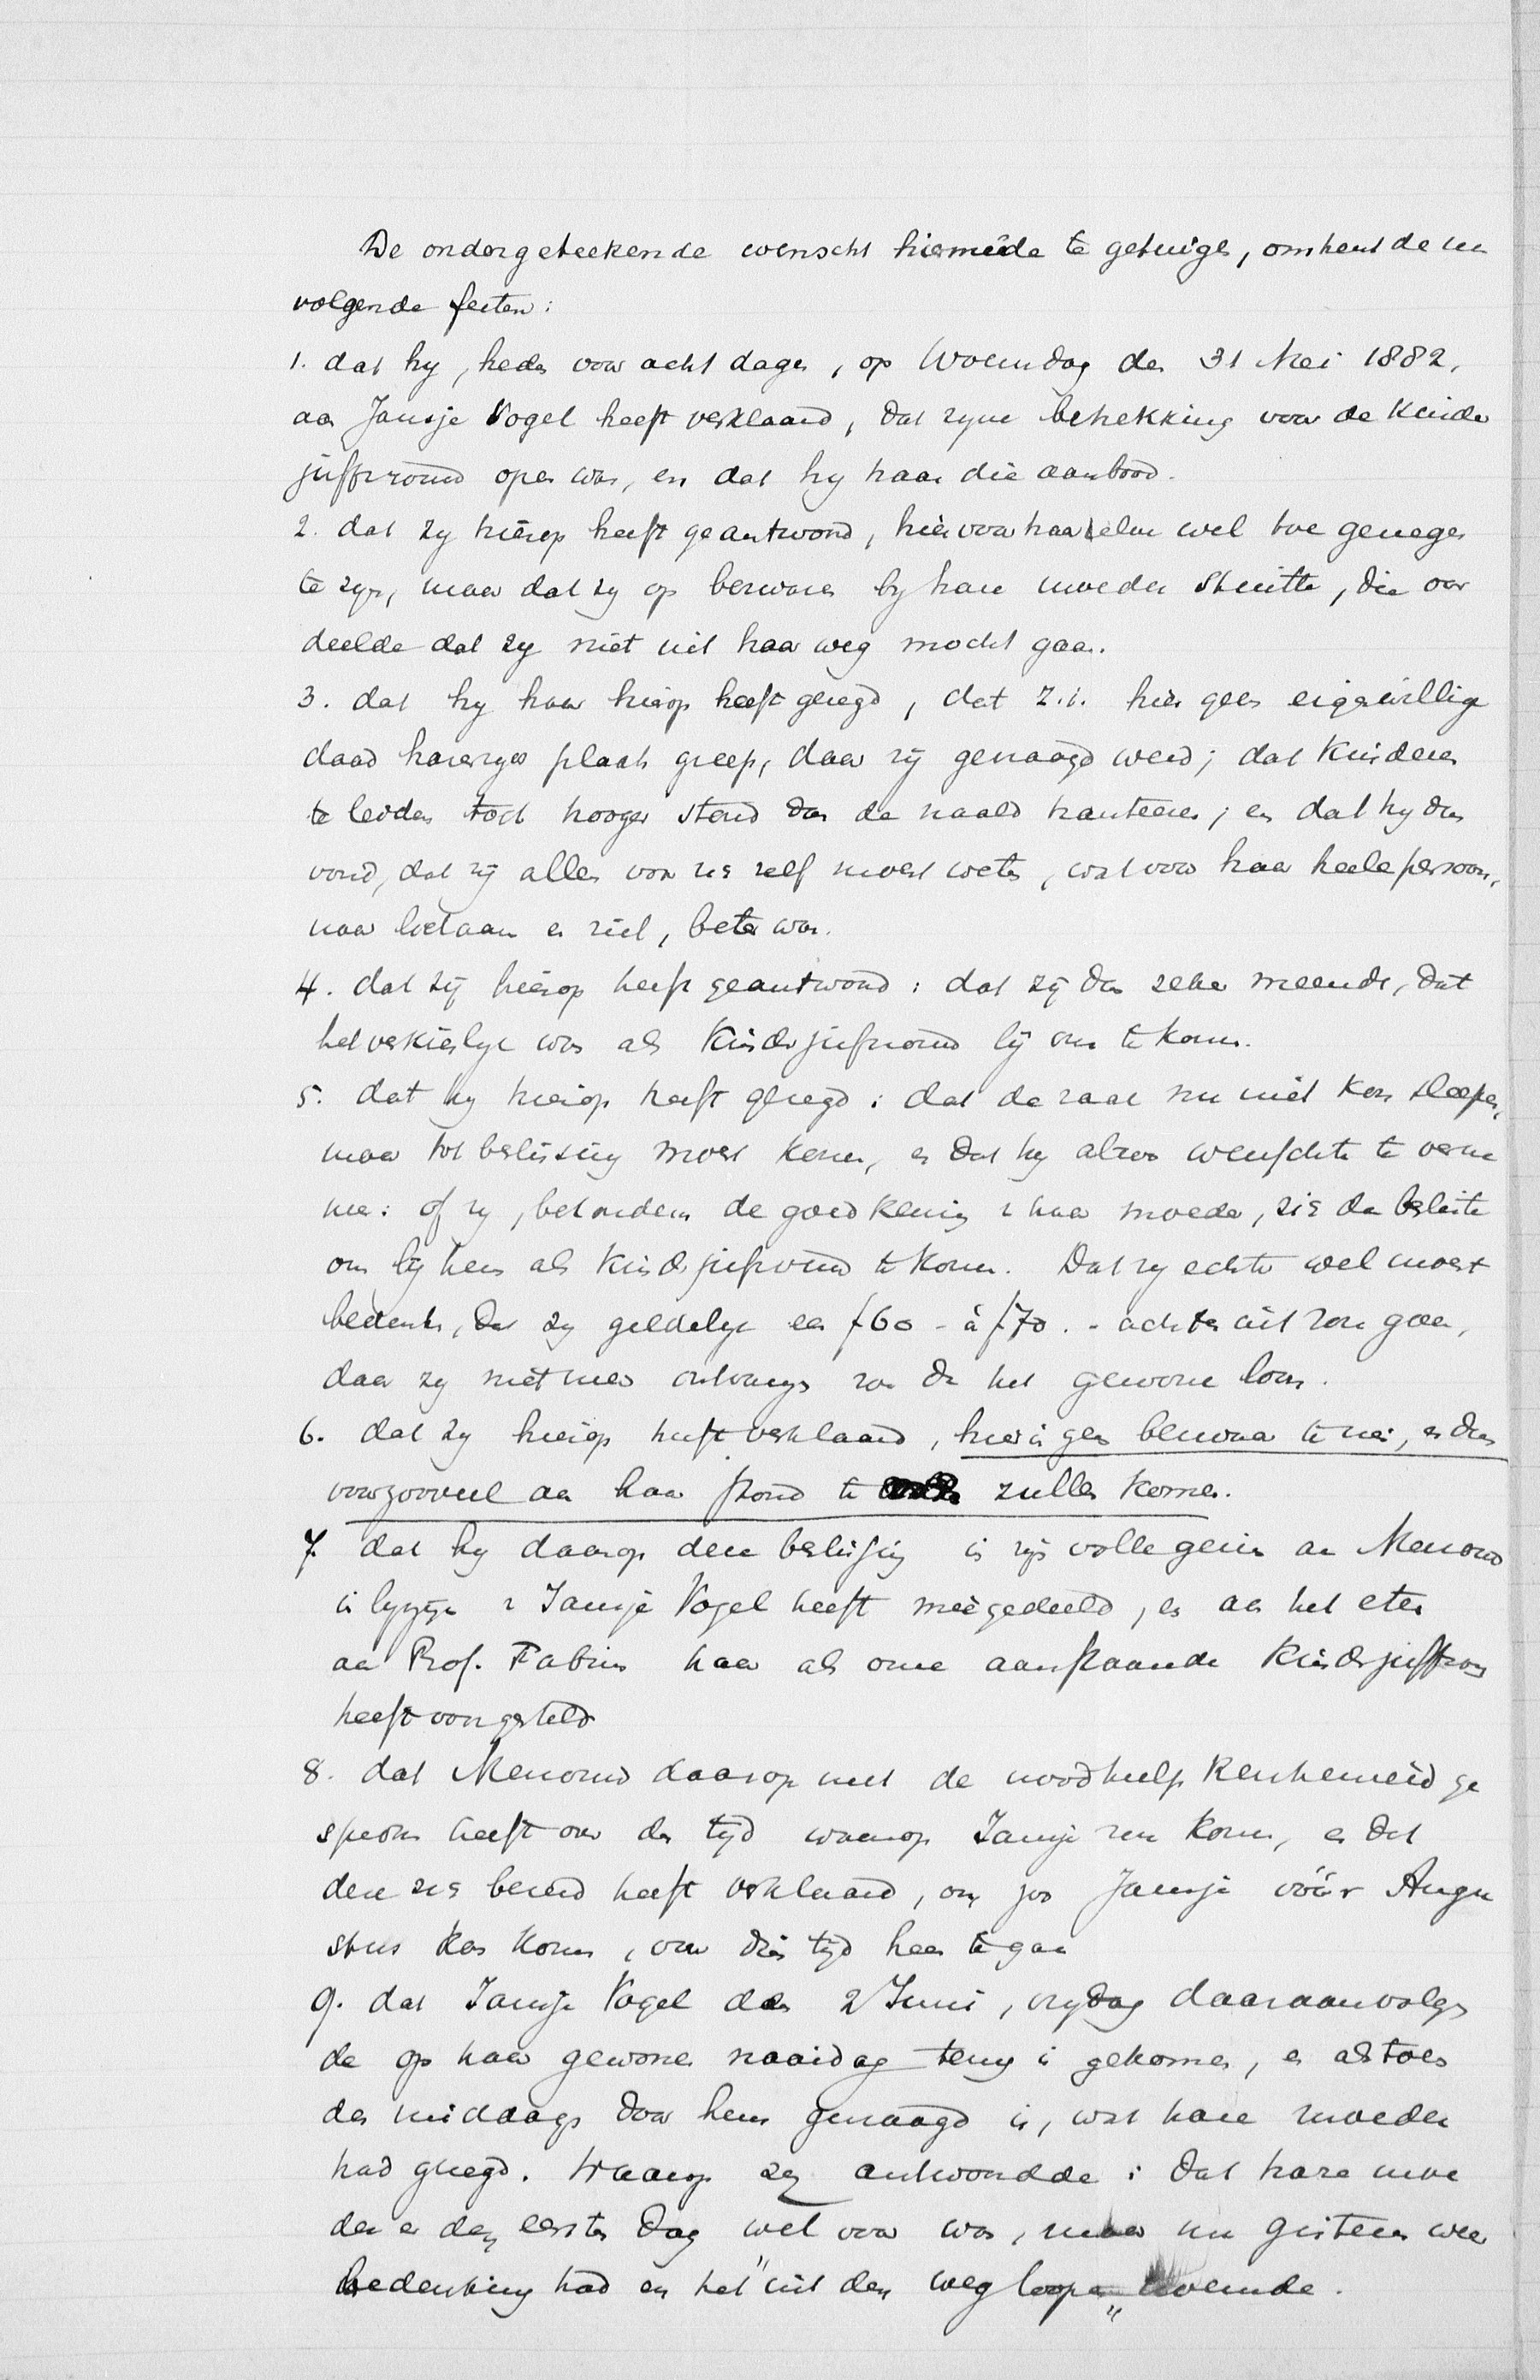 De ondergeteekende wenscht hiermede te getuigen, omtrent de na
volgende feiten:
1. dat hy, heden voor acht dagen, op Woensdag den 31 Mei 1882,
aan Jansje Vogel heeft verklaard, dat zyne betrekking voor de kinder
juffrouw open was, en dat hy haar die aanbood.
2. dat zy hierop heeft geantwoord, hiervoor haarzelve wel toe genegen
te zyn, maar dat zy op bezwaren by hare moeder stuitte, die oor
deelde dat zy niet uit haar weg mocht gaan.
3. dat hy haar hierop heeft gezegd, dat z.i. hier geen eigenwillige
daad harerzyds plaats greep, daar zij gevraagd werd; dat kinderen
te leiden toch hooger stond dan de naald hanteeren; en dat hy dus
vond, dat zij alles voor zich zelf moest weten, wat voor haar heele persoon,
naar lichaam en ziel, beter was.
4. dat zij hierop heeft geantwoord: dat zij dan zeker meende, dat
het verkieslyk was als kinderjufvrouw bij ons te komen.
5. dat hy hierop heeft gezegd: dat de zaak nu niet kon slepen,
maar tot beslissing moest komen, en dat hy alzoo wenschte te verne
men: of zy, behoudens de goedkeuring v haar moeder, zich dan besliste
om bij hem als kinderjufvrouw te komen. Dat zy echter wel moest
bedenken, dat zy geldelyk een f60 - à f70.- achteruit zou gaan,
daar zy niet meer ontvangen zou dan het gewone loon.
6. dat zy hierop heeft verklaard, hierin geen bezwaar te zien, en dus
voorzooveel aan haar stond te zullen komen.
7. dat hy daarop deze beslissing in zijn volle gezin aan Mevrouw
in byzyn v Jansje Vogel heeft meêgedeeld, en aan het eten
aan Prof. Fabius haar als onze aanstaande kinderjuffrouw
heeft voorgesteld
8. dat Mevrouw daarop met de noodhulp keukenmeid ge
sproken heeft over den tijd waarop Jansje zou komen, en dat
deze zich bereid heeft verklaard, om zoo Jansje vóór Augu
stus kon komen, voor dien tijd heen te gaan
9. dat Jansje Vogel den 2 Juni, vrydag daaraanvolgen
de op haar gewonen naaidag terug is gekomen, en alstoen
des middags door hem gevraagd is, wat hare moeder
had gezegd. Waarop zy antwoordde: dat hare moe
der er den eersten dag wel voor was, maar nu gisteren weer
bedenking had en het "uit den weg loopen" noemde.